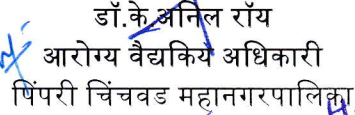 डॉ.के.अनिल रॉय
आरोग्य वैद्यकिय अधिकारी
पिंपरी चिंचवड महानगरपालिका